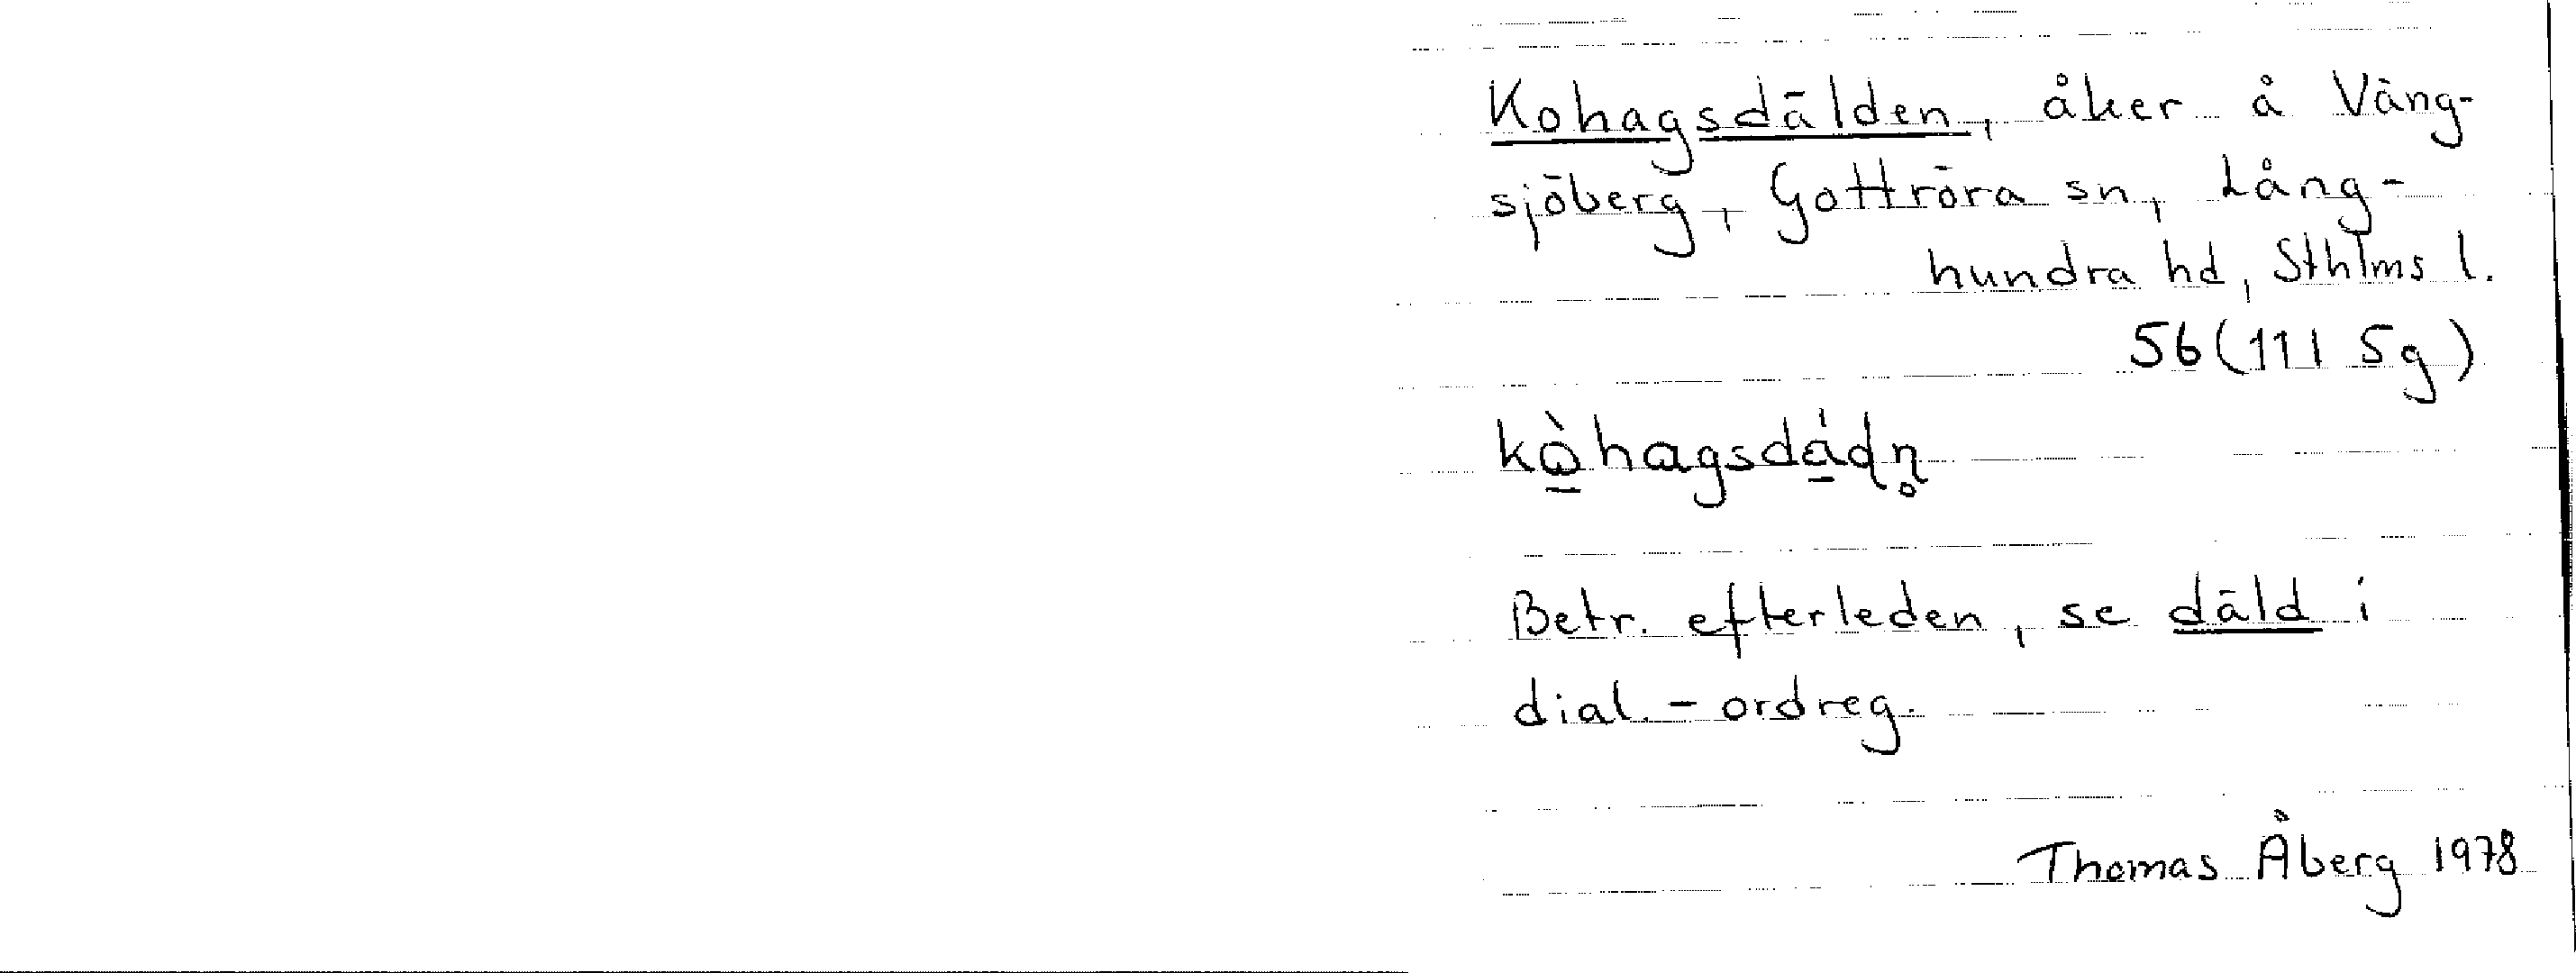 Kohagsdälden, åker å Väng-
sjöberg, Gottröra sn, Lång-
hundra hd, Sthlms l.
56 (11I 5g)
Betr. efterleden, se däld i
dial.-ordreg.
Thomas Åberg 1978